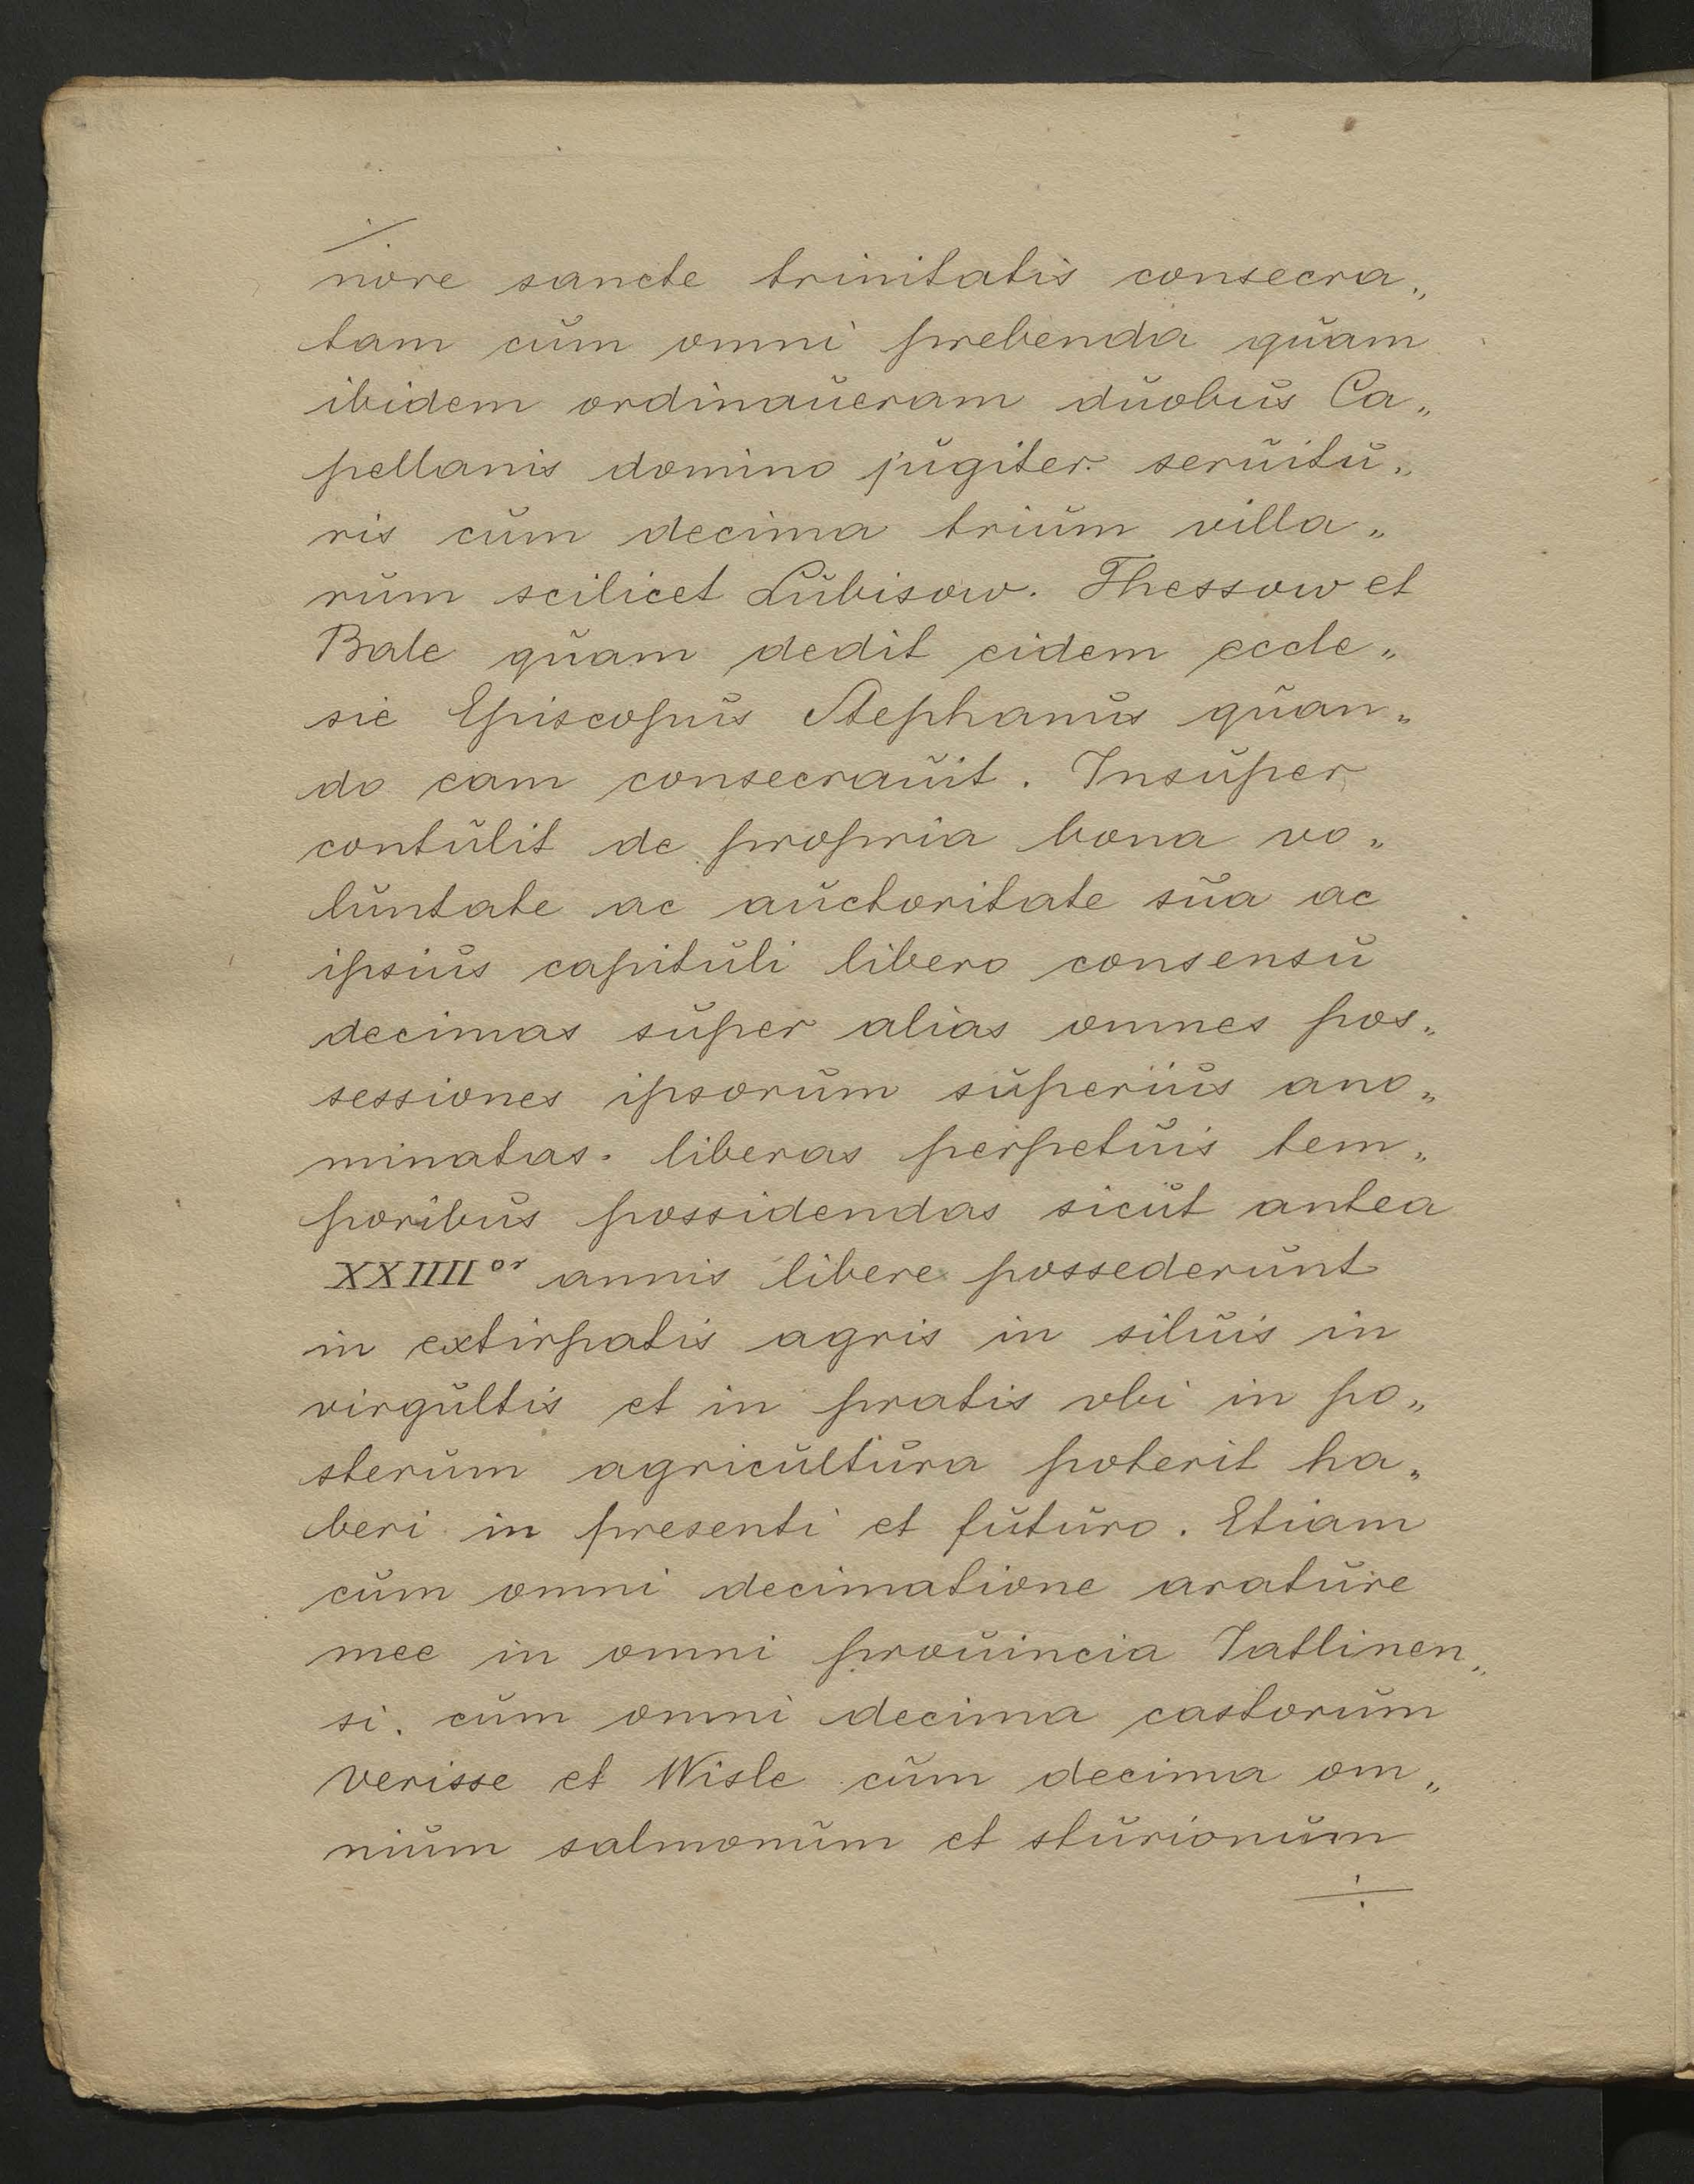 nore sancte trinitatis consecra„
tam cum omni prebenda quam
ibidem ordinaueram duobus Ca„
pellanis domino jugiter seruitu„
ris cum decima trium villa„
rum scilicet Lubisow. Thessow et
Bale quam dedit eidem eccle„
sie Episcopus Stephanus quan„
do eam consecrauit. Insuper
contulit de propria bona vo„
luntate ac auctoritate sua ac
ipsius capituli libero consensu
decimas super alias omnes pos„
sessiones ipsorum superius ano„
minatas. liberas perpetuis tem„
poribus possidendas sicut antea
XXIIII or annis libere possederunt
in extirpatis agris in siluis in
virgultis et in pratis vbi in po„
sterum agricultura poterit ha„
beri in presenti et futuro. Etiam
cum omni decimatione arature
mee in omni prouincia Tatlinen„
si. cum omni decima castorum
Verisse et Wisle cum decima om„
nium salmonum et sturionum